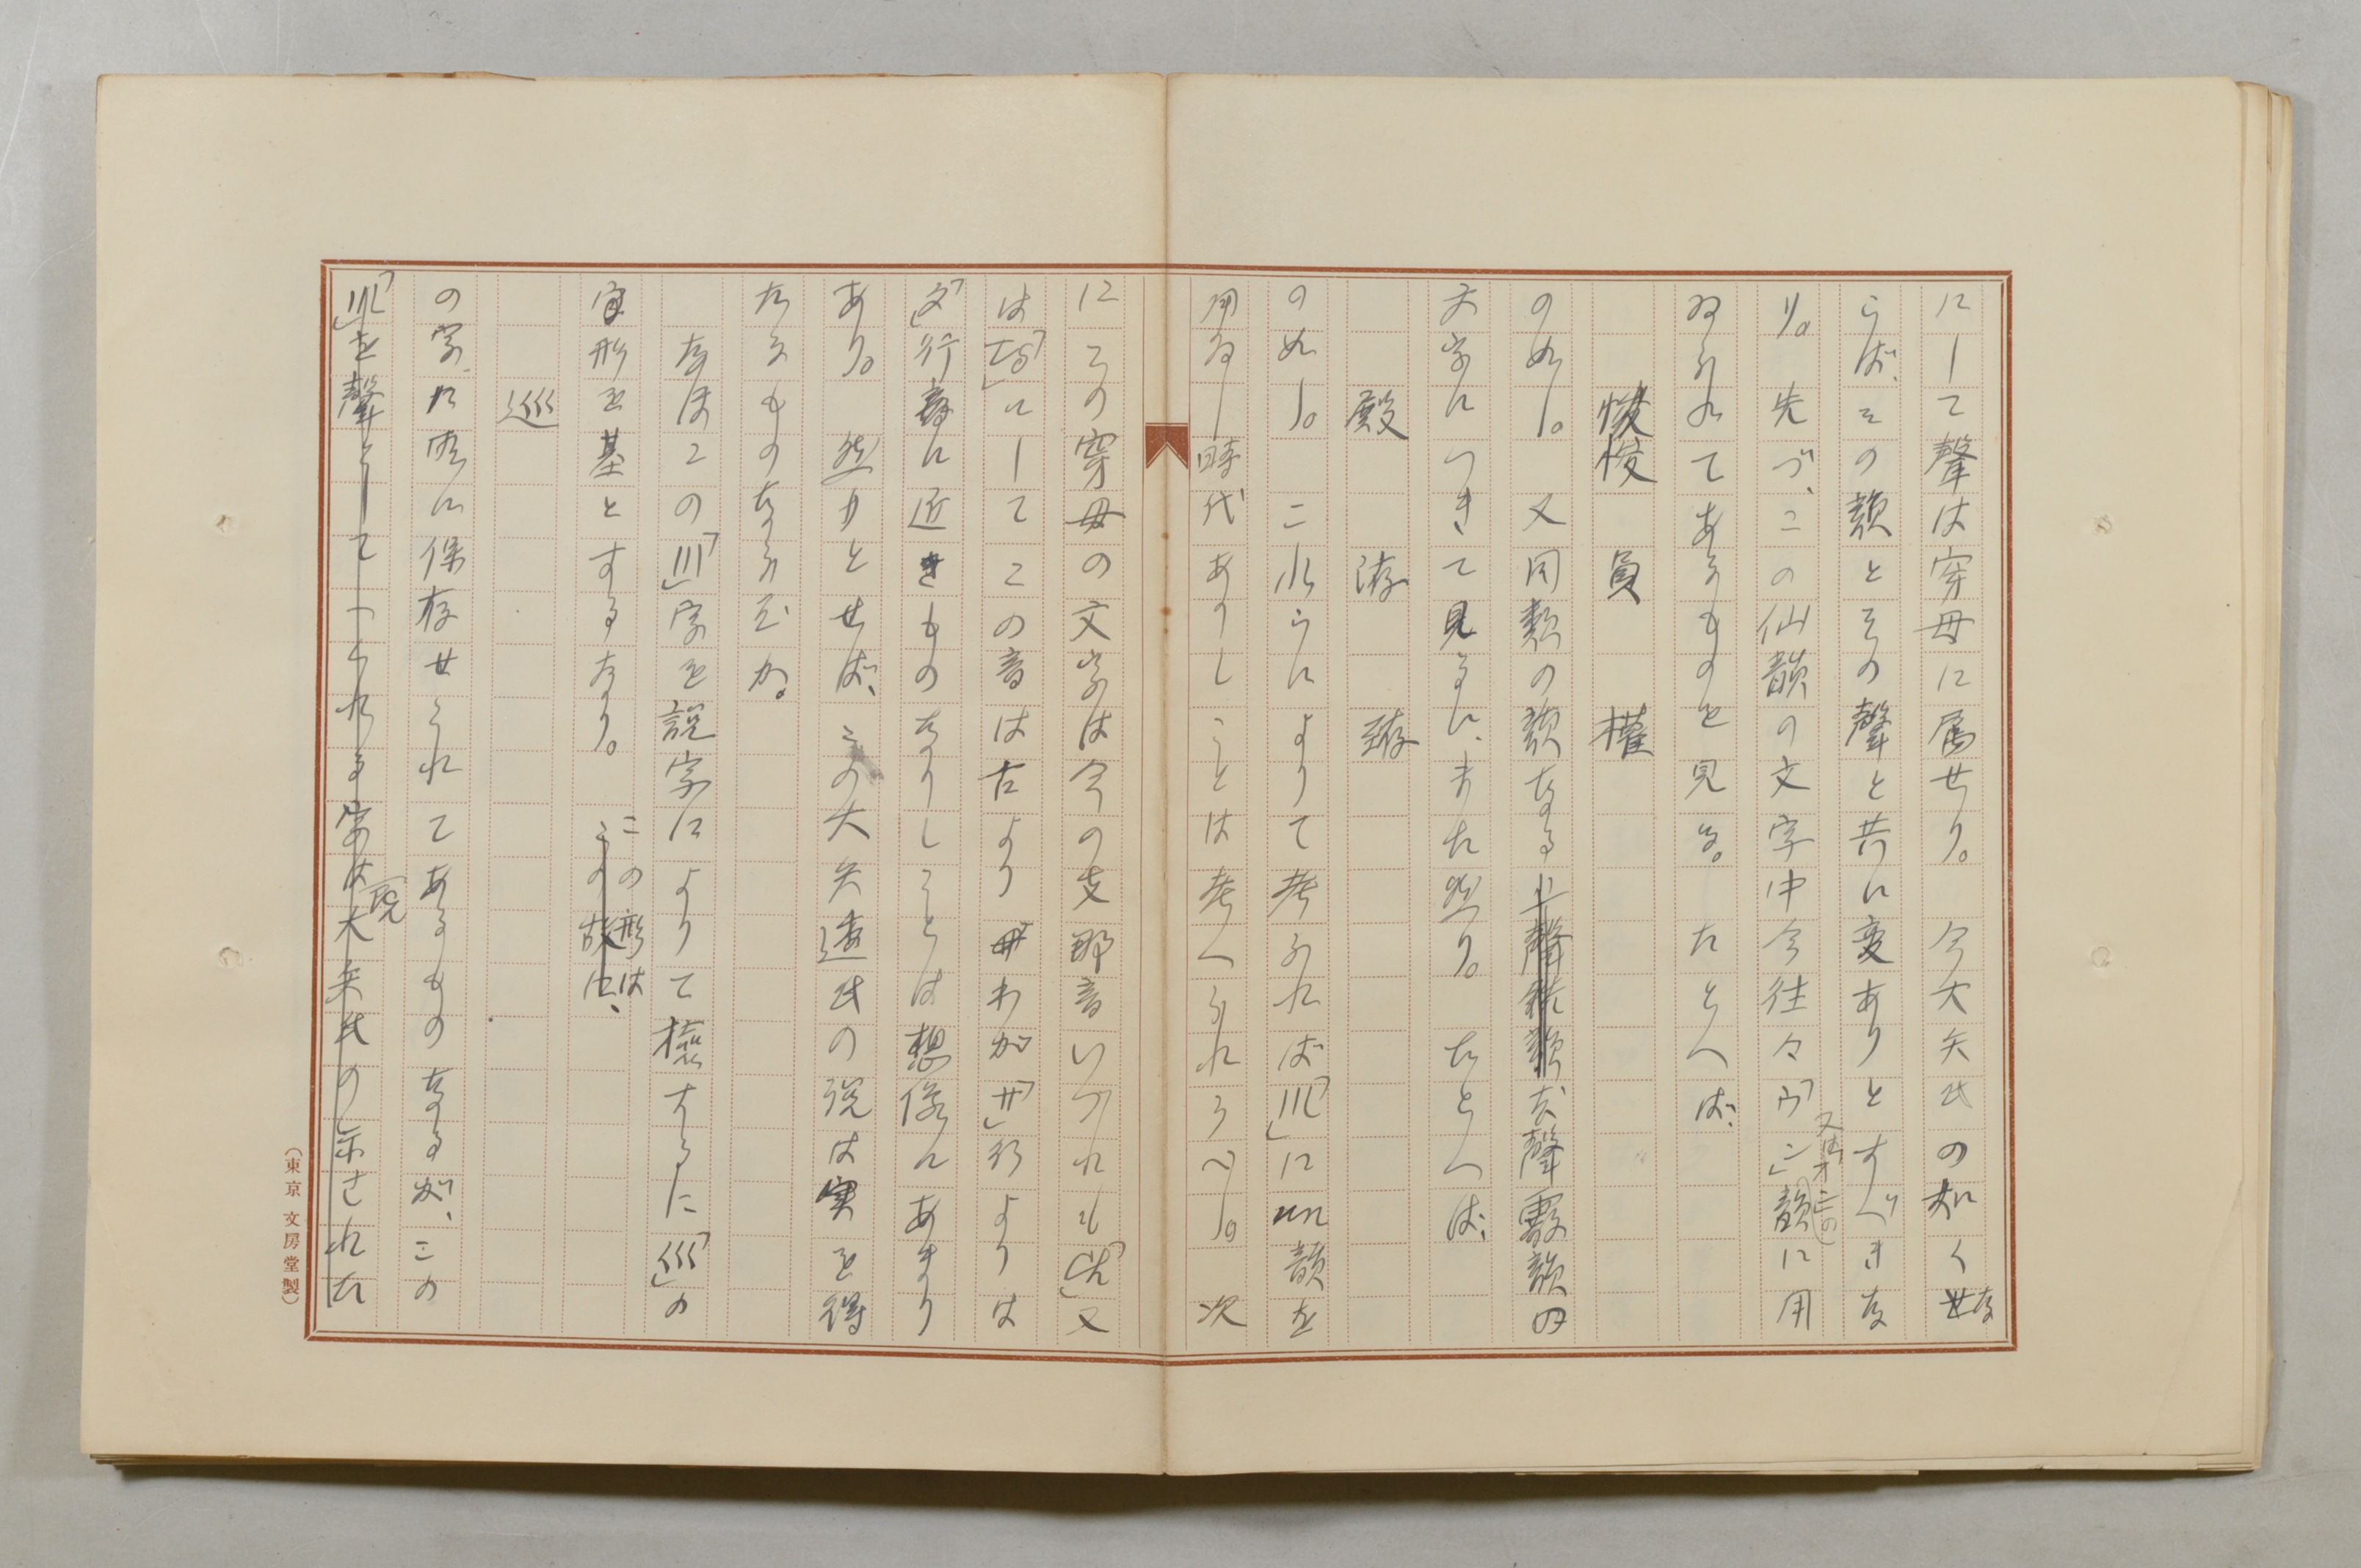 にして聲は穿母に属せり。今大矢氏の如くな
らば、その韻とその聲と共に変ありとすべきな
り。先づ、この仙韻の文字中今往々「ウン」又はオンの韻に用
ゐられてあるものを見る。たとへば、
悛 員 權
の如し。又同類の韻なる去聲霰韻の
文字につきて見るに、また然り。たとへば、
殿 洊 荐
の如し。これらによりて考ふれば「川」にun韻を
用ゐし時代ありしことは考へうれうべし。次
にこの穿母の文字は今の支那音いづれも「ch」又
は「ts」にしてこの音は古よりわが「サ」行よりは
「タ」行音に近きものなりしことは想像にあまり
あり。然りとせば、この大矢透氏の説は実を得
たるものならむか。
なほこの「川」字を説字によりて検するに「巡」の
字形を基とするなり。この形は、
巡
の字に明に保存せられてあるものなるが、この
「川」を聲としてつくれる字は大矢氏の示された
(東京 文房堂製)